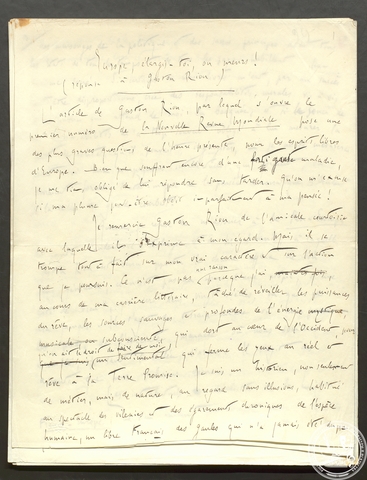 Europe, élargis-toi, ou meurs!
(réponse à Gaston Riou)
L'article de Gaston Riou, par lequel s'ouvre le
premier numéro de la Nouvelle Revue Mondiale pose une
des plus graves questions de l'heure présente, pour les esprits libres
d'Europe. Bien que souffrant encore d'une maladie,
je me tiens obligé de lui répondre sans tarder. Qu'on m'excuse
si ma plume peut-être obéit imparfaitement à ma pensée!
Je remercie Gaston Riou de l'amicale courtoisie
avec laquelle il s'exprime à mon égard. Mais il se
trompe tout à fait sur mon vrai caractère et sur l'action
que je poursuis. Ce n'est pas parceque j'ai
au cours de ma carrière littéraire, tâché de réveiller les puissances
du rêve, les sources sauvages et profondes de l'énergie
musicale ou subconsciente, qui dort au cœur de l'Occident, pour
sentimental qui ferme les yeux au réel et
rêve à sa Terre Promise. Je suis un historien, non seulement
de métier, mais de nature, au regard sans illusions, habitué
au spectacle des violences et des égarements chroniques de l'espèce
humaine, un libre Français des Gaules qui n'a jamais été dupe